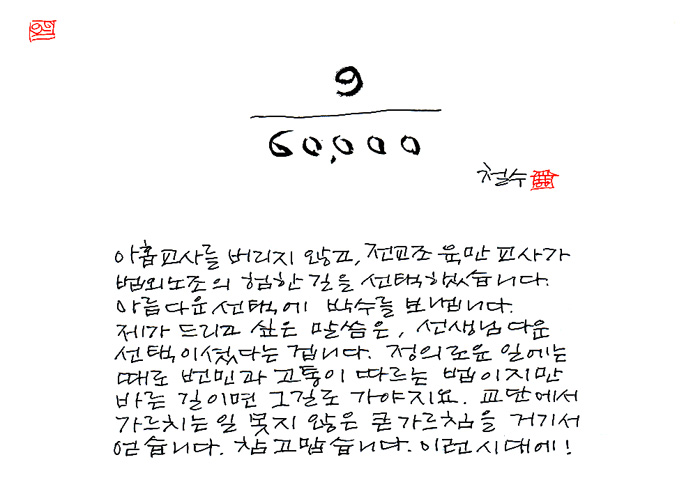 9
60,000
철수
아홉 교사를 버리지 않고, 전교조 육만 교사가
법외노조의 험한 길을 선택했습니다.
아름다운 선택에 박수를 보냅니다.
제가 드리고 싶은 말씀은, 선생님다운
선택이셨다는 겁니다. 정의로운 일에는
때로 번민과 고통이 따르는 법이지만
바른 길이면 그걸로 가야지요. 교단에서
가르치는 일 못지 않은 큰 가르침을 거기서
얻습니다. 참 고맙습니다. 이런 시대에!